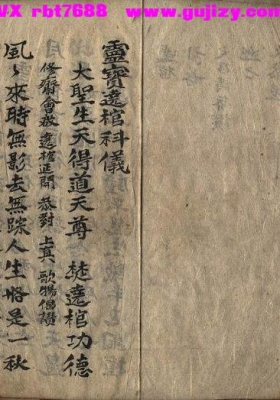 VX rbt7688
www.gujizy.com
靈寶遶棺科儀
大聖生天得道天尊 遶棺功德
修齋會啟遶棺正間恭對 上真 歌揚偈讚
風〻來時無影去無踪人生恰是一秋